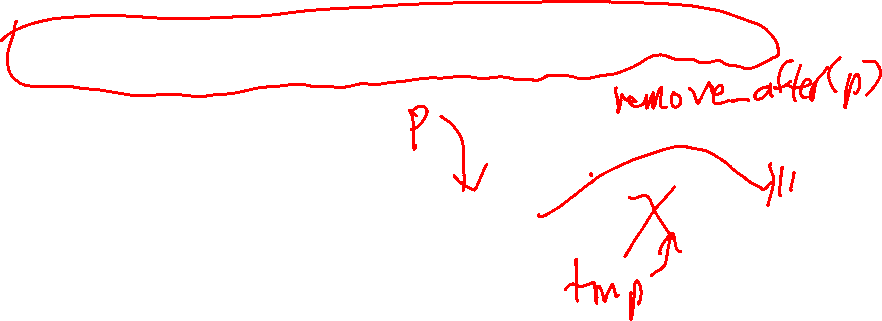 remove_after(p)
p
tmp